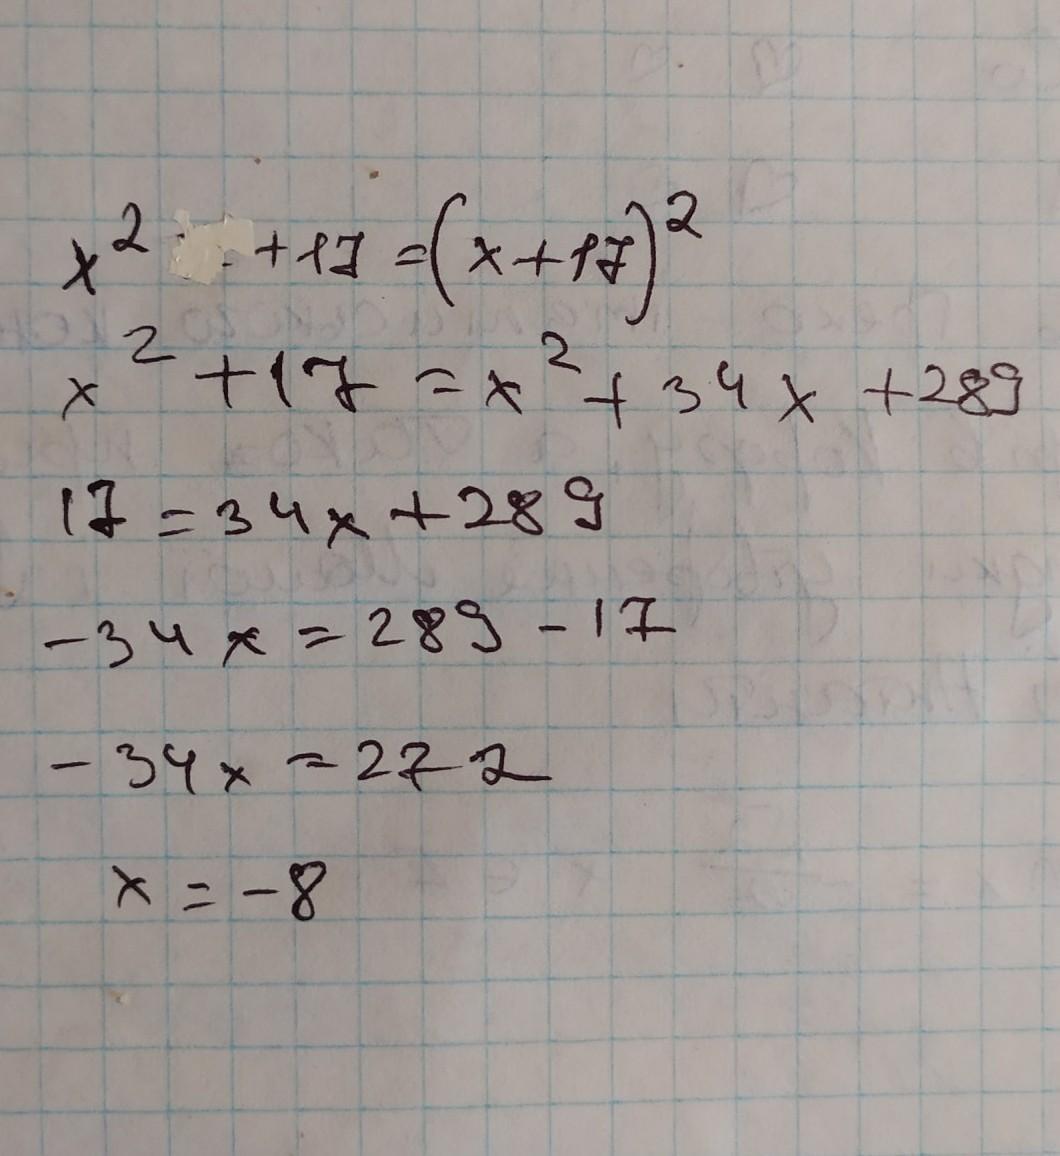 x² +17 = (x+17)²
x² +17 = x² + 34x +289
17 = 34x + 289
-34x = 289 - 17
-34x = 272
x = -8